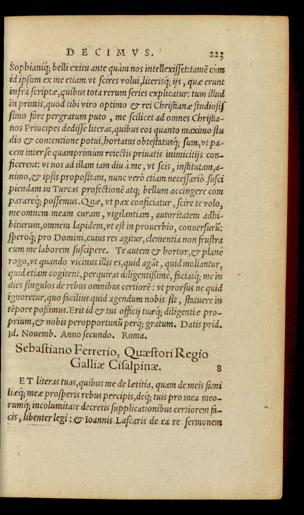 DECIMVS. 223
Sophianiq́; belli exitu ante quàm nos intellexisset: tamē cùm
id ipsum ex me etiam vt scires volui, literisq́; ijs, quæ erunt
infrà scriptæ, quibus tota rerum series explicatur: tum illud
in primis, quod tibi viro optimo & rei Christianæ studiosis
simo fore pergratum puto, me scilicet ad omnes Christia-
nos Principes dedisse literas, quibus eos quanto maximo stu
dio & contentione potui, hortatus obtestatusq́; sum, vt pa-
cem inter se quamprimùm reiectis priuatis inimicitijs con-
ficerent: vt nos ad illam tam diu à me, vt scis, institutam, a-
nimo, & ipsis propositam, nunc verò etiam necessariò susci
piendam in Turcas profectionē atq́; bellum accingere com
parareq́; possemus. Qua, vt pax conficiatur, scire te volo,
me omnem meam curam, vigilantiam, autoritatem adhi-
biturum, omnem lapidem, vt est in prouerbio, conuersurū:
speroq́; pro Domini, cuius res agitur, clementia non frustra
eum me laborem suscipere. Te autem & hortor, & planè
rogo, vt quando vicinus illis es, quid agāt, quid moliantur,
quid etiam cogitent, perquiras diligentissimè, faciásq́; me in
dies singulos de rebus omnibus certiorē: vt prorsus ne quid
ignoretur, quo faciliùs quid agendum nobis sit, statuere in
tēpore possimus. Erit id & tui officij tuæq́; diligentiæ pro-
prium, & nobis peropportunū perq́; gratum. Datis prid.
Id. Nouemb. Anno secundo. Roma.
Sebastiano Ferrerio, Quæstori Regio
Galliæ Cisalpinæ. 8
ET literas tuas, quibus me de lætitia, quam de meis fami
liæq́; meæ prosperis rebus percipis, déq́; tuis pro mea meo-
rumq́; incolumitate decretis supplicationibus certiorem fa-
cis, libenter legi: & Ioannis Lascaris de ea re sermonem